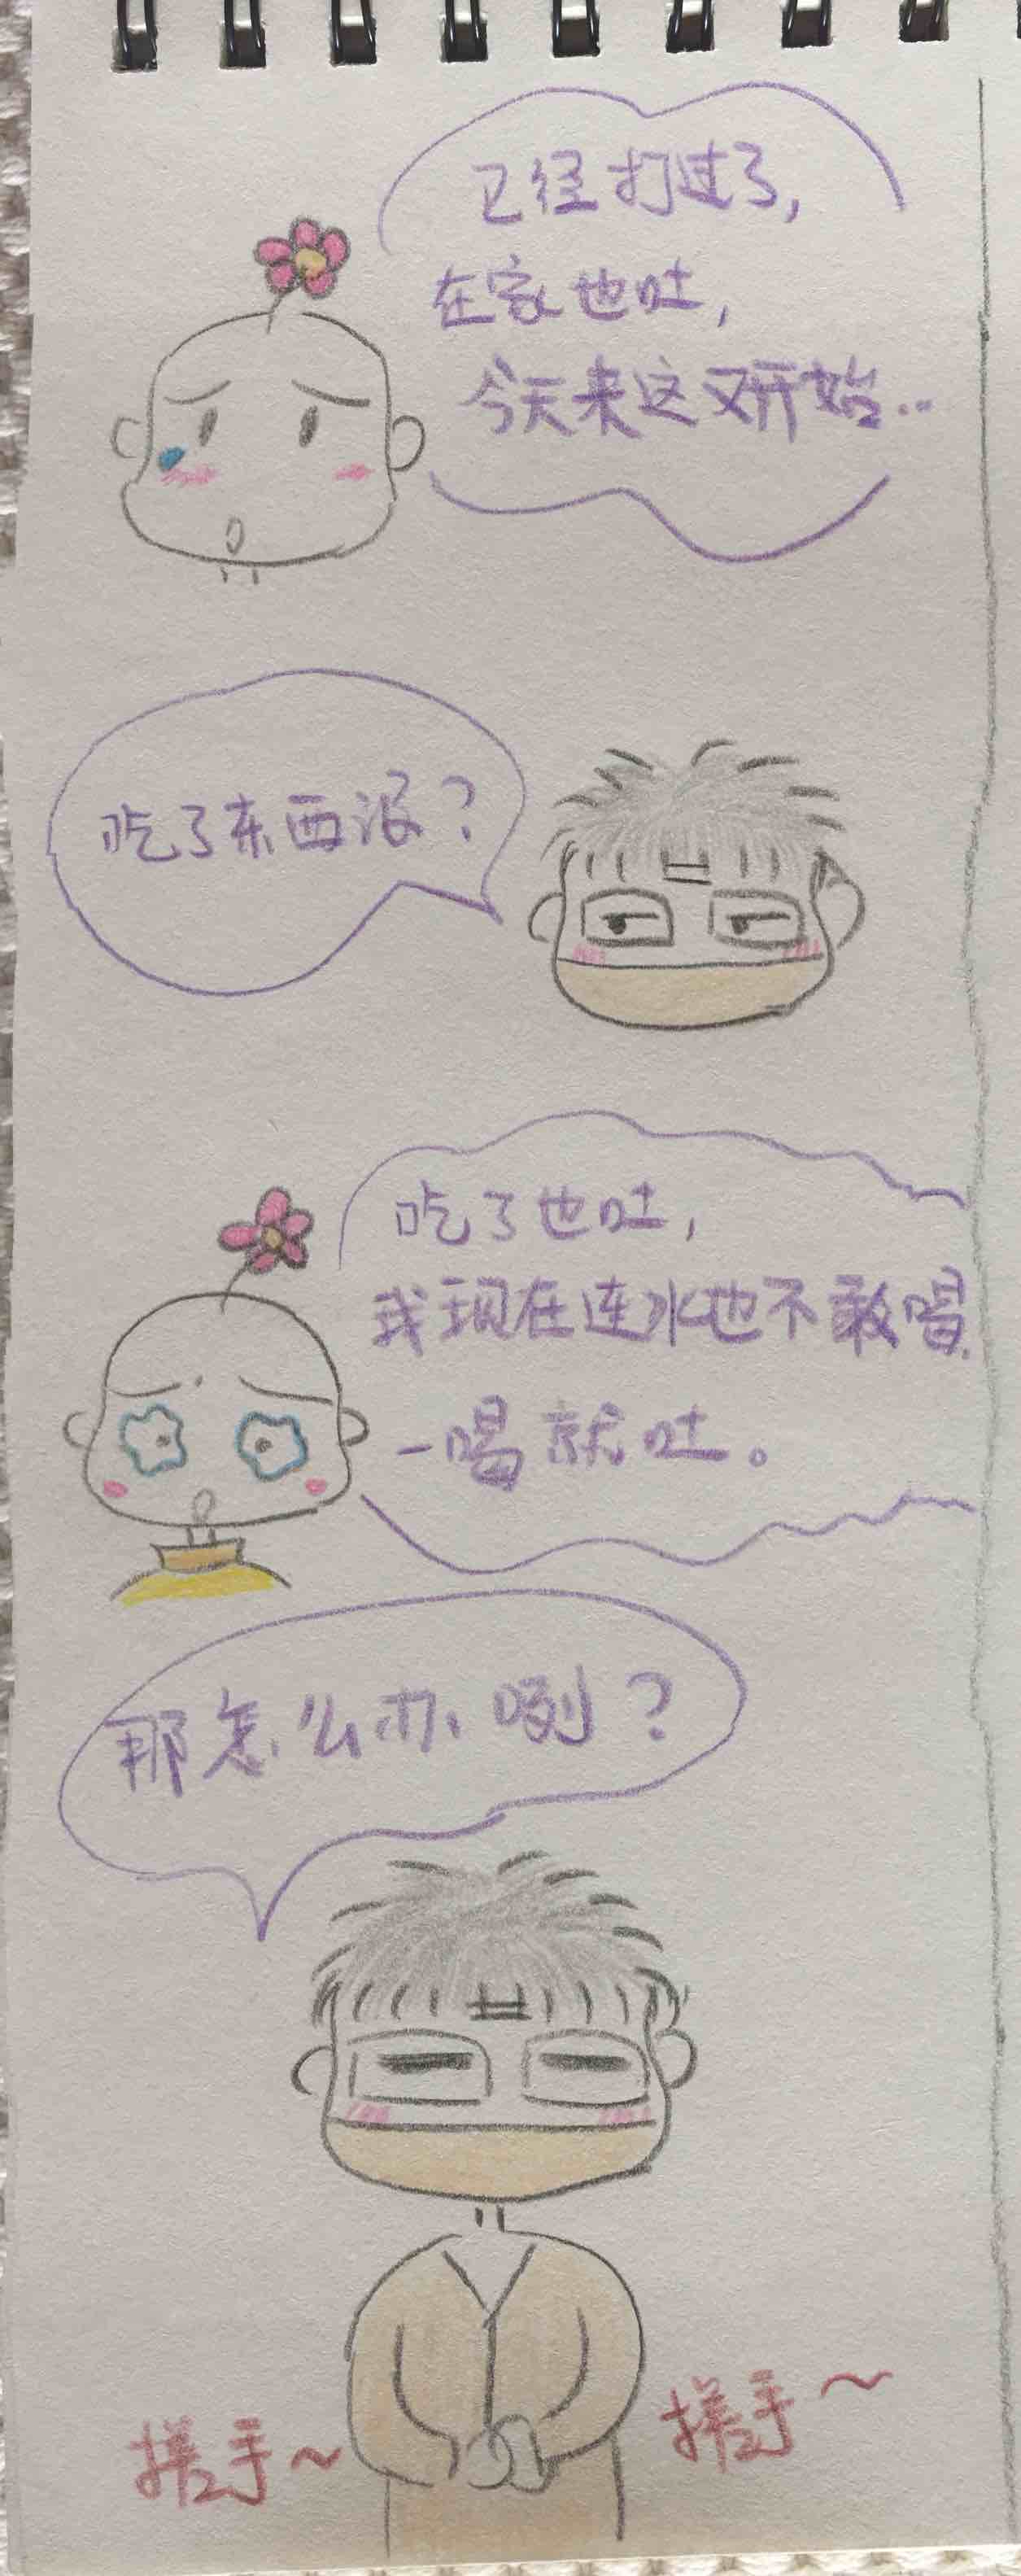 已经打过了，
在家也吐，
今天来这又开始..
吃了东西没？
吃了也吐，
我现在连水也不敢喝.
一喝就吐。
那怎么办咧？
搓手~
搓手~